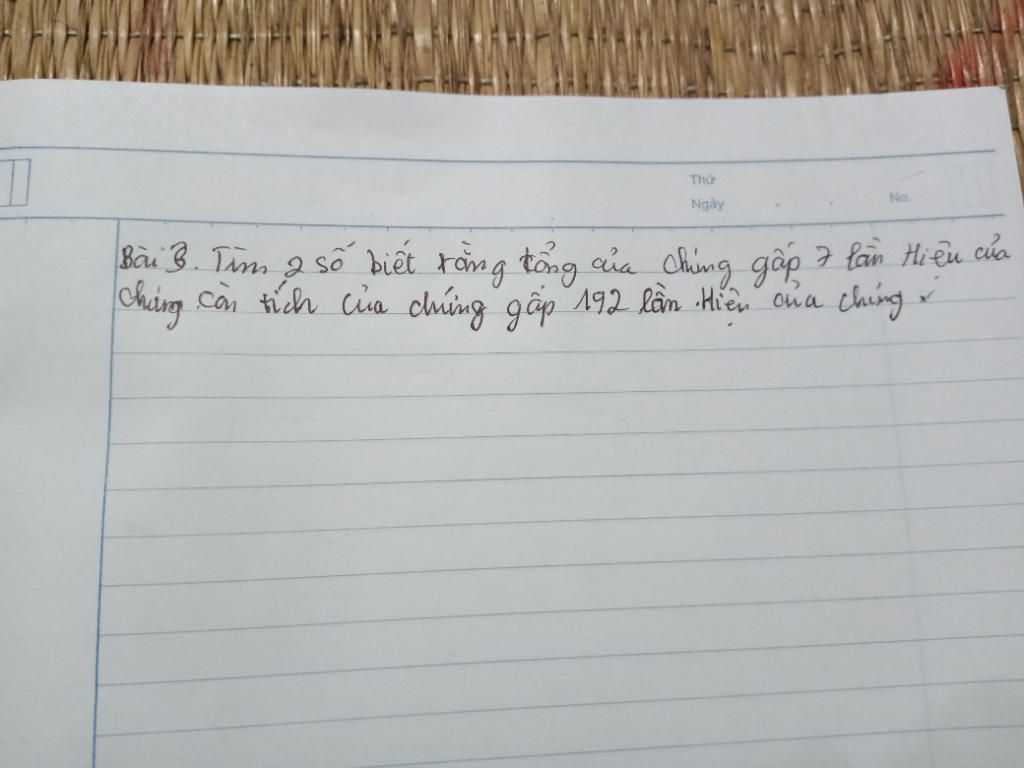 Thứ
Ngày . .
No.
Bài 3. Tìm 2 số biết rằng tổng của chúng gấp 7 lần Hiệu của
chúng còn tích của chúng gấp 192 lần Hiệu của chúng